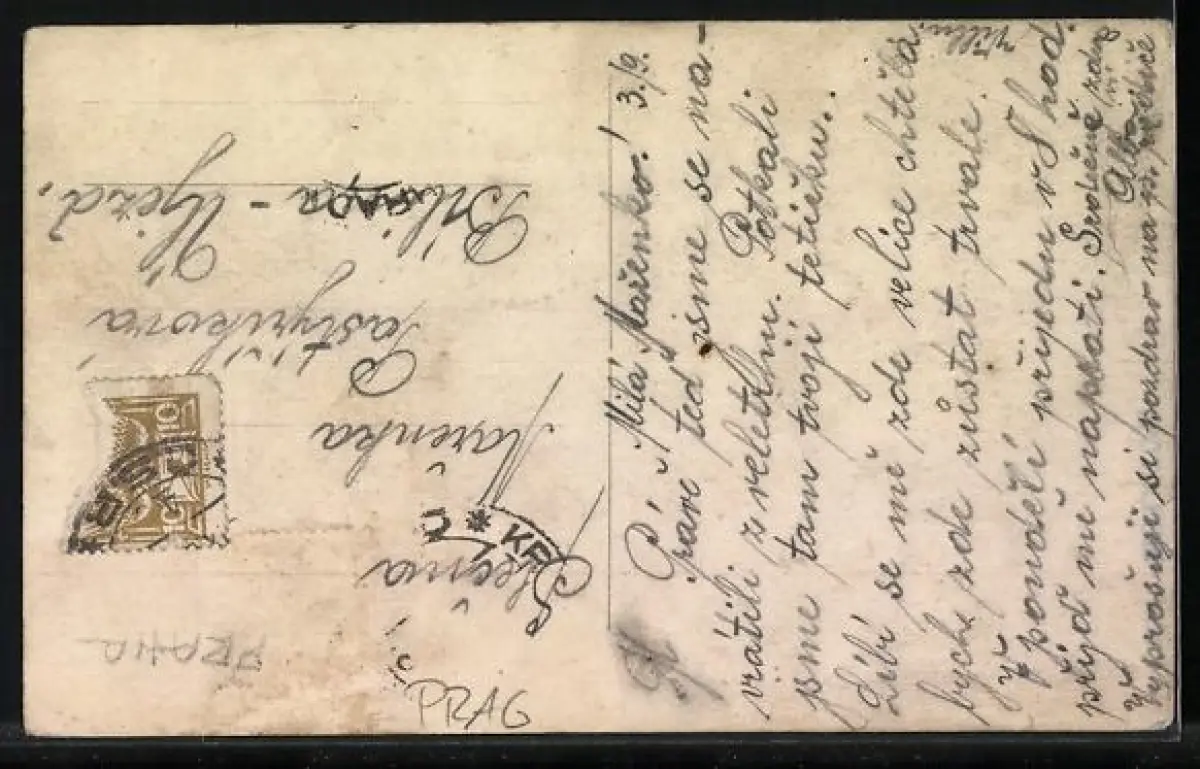 3./9.
Milá Mařenko!
Právě teď jsme se na-
vrátili z veletrhu. Potkali
jsme tam tvoji tetičku.
Líbí se mě zde velice chtěla
bych zde zůstat trvale.
V pondělí přijedu v 8 hod.
přijď mě naproti. Srdečně zdraví
Vyprošuji si pozdrav na
Slečna
Mařenka
Pastyříkova
Bílina - Újezd.
10 10
KR
PRAHA
PRAG